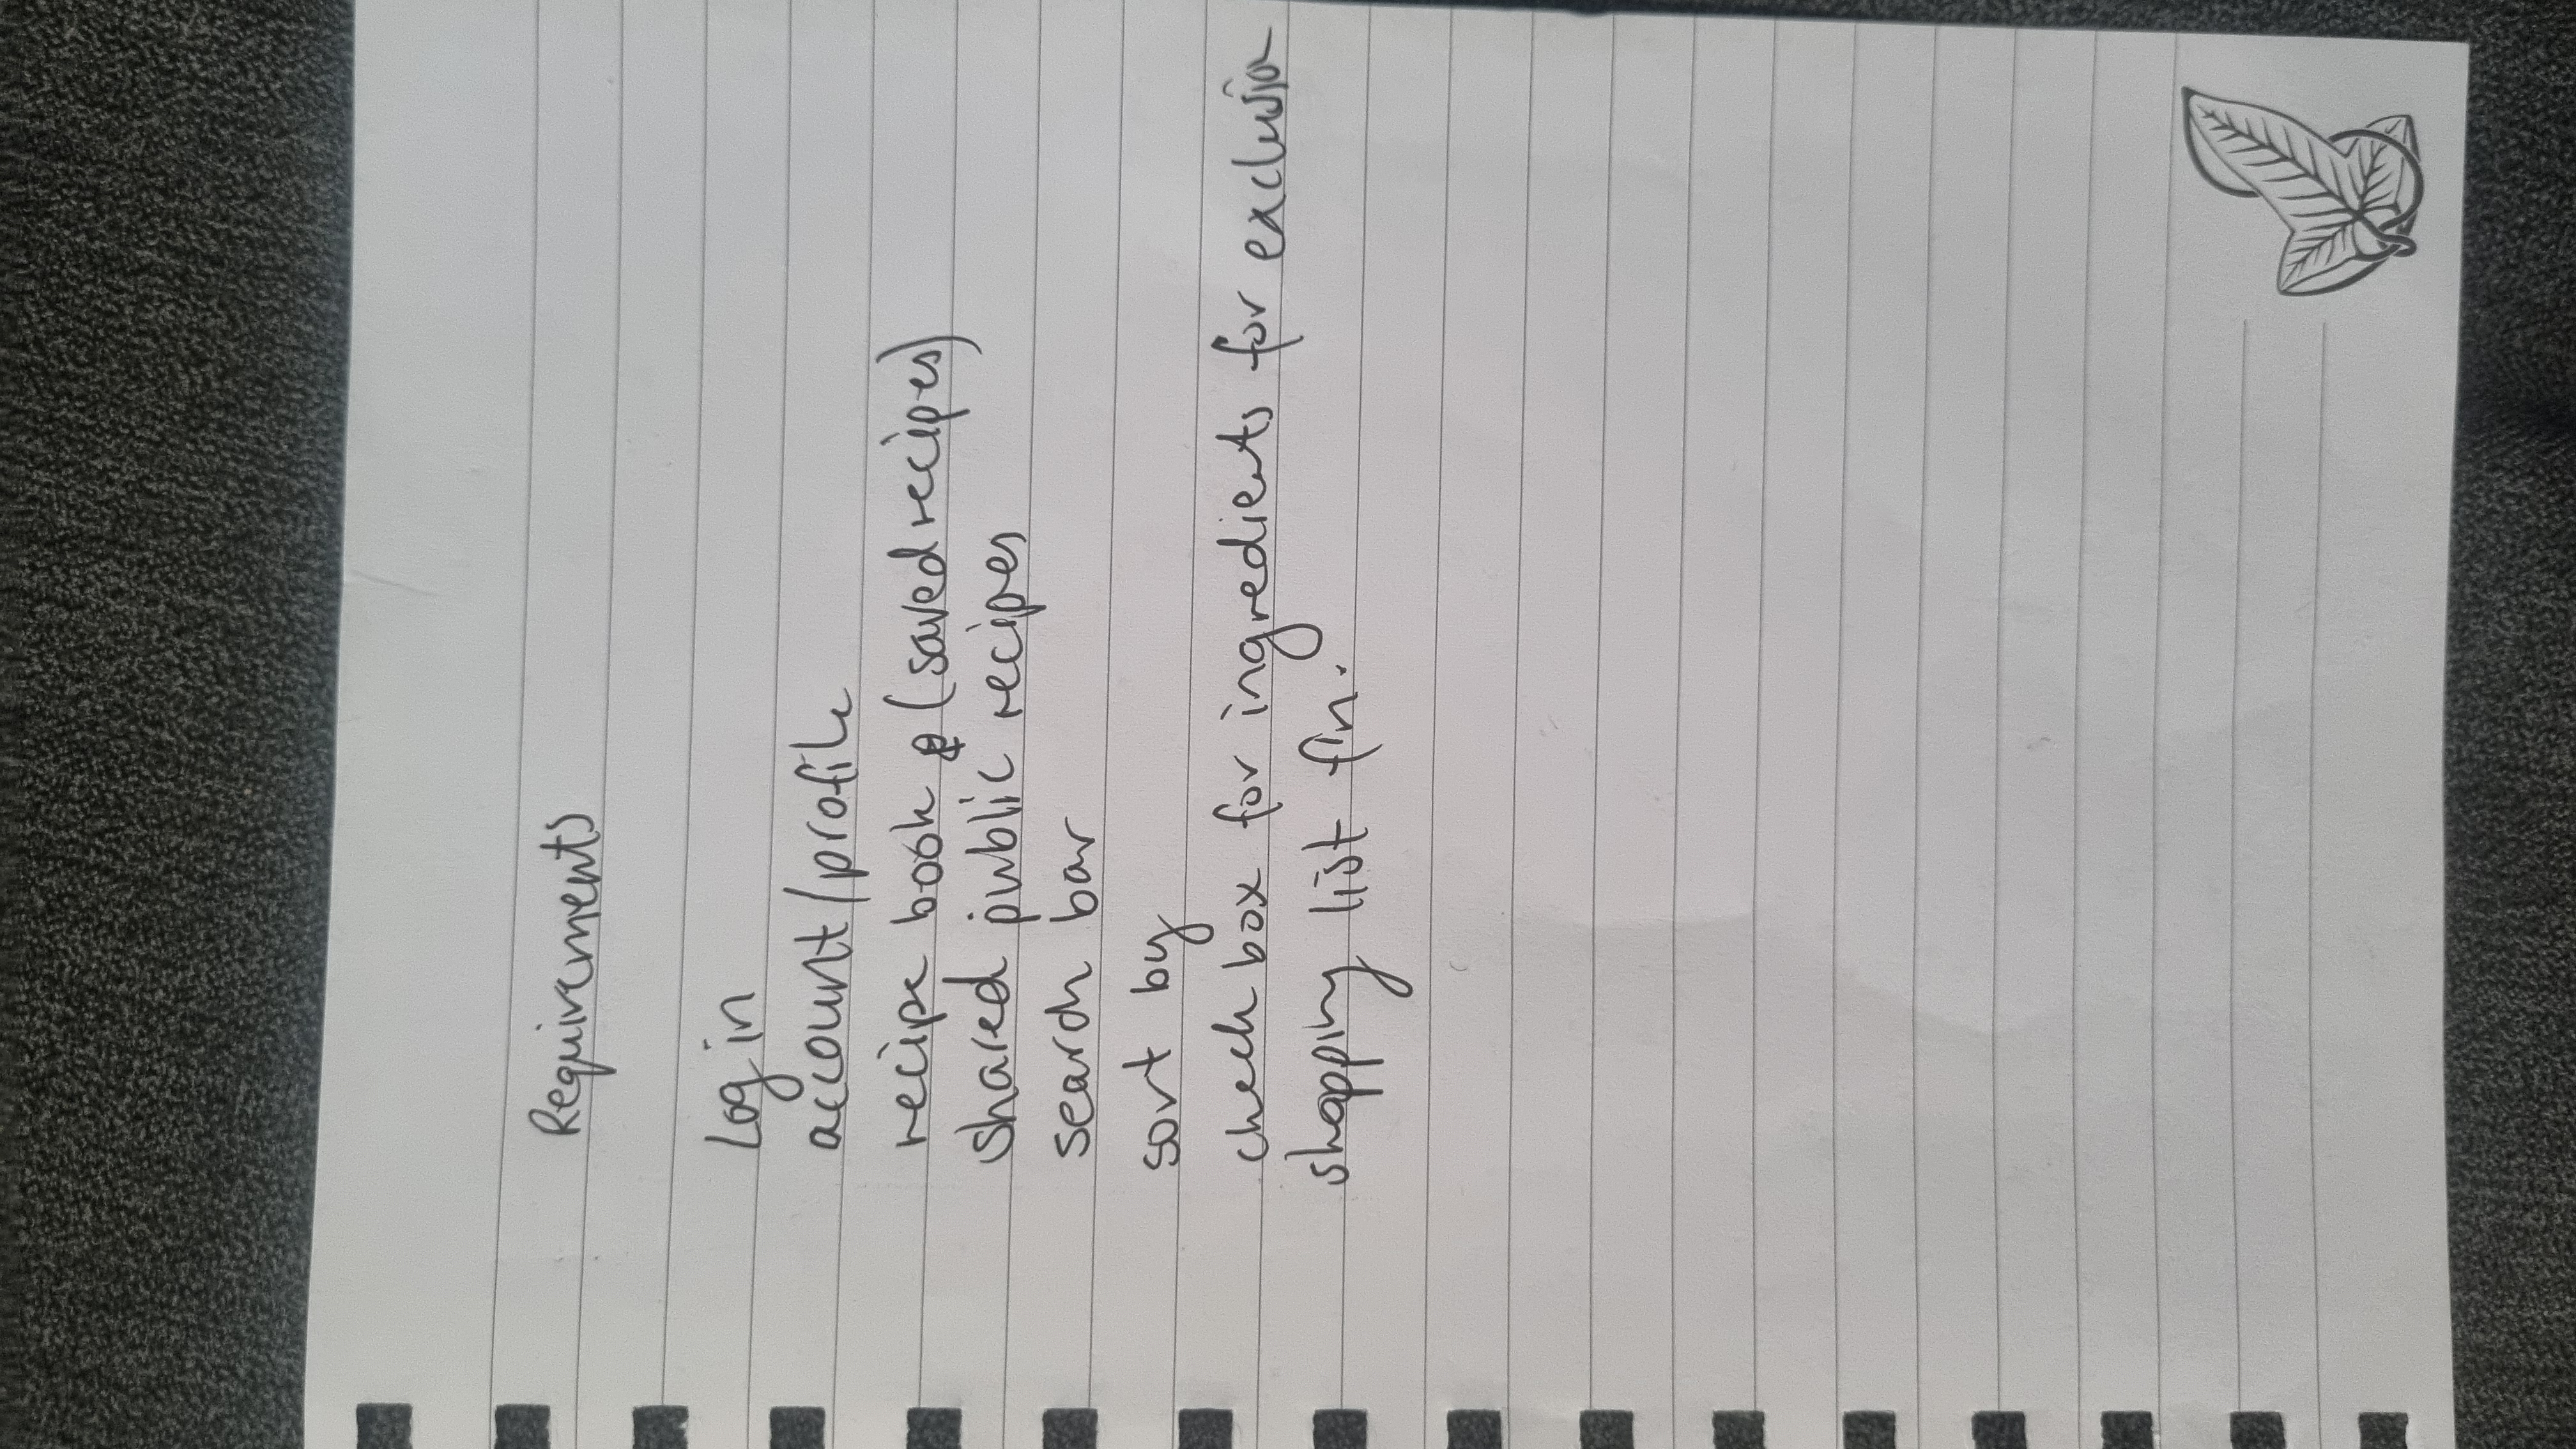 Requirements
Log in
account/profile
recipe book (saved recipes)
shared public recipes
search bar
sort by
check box for ingredients for exclusion
shopping list fn.